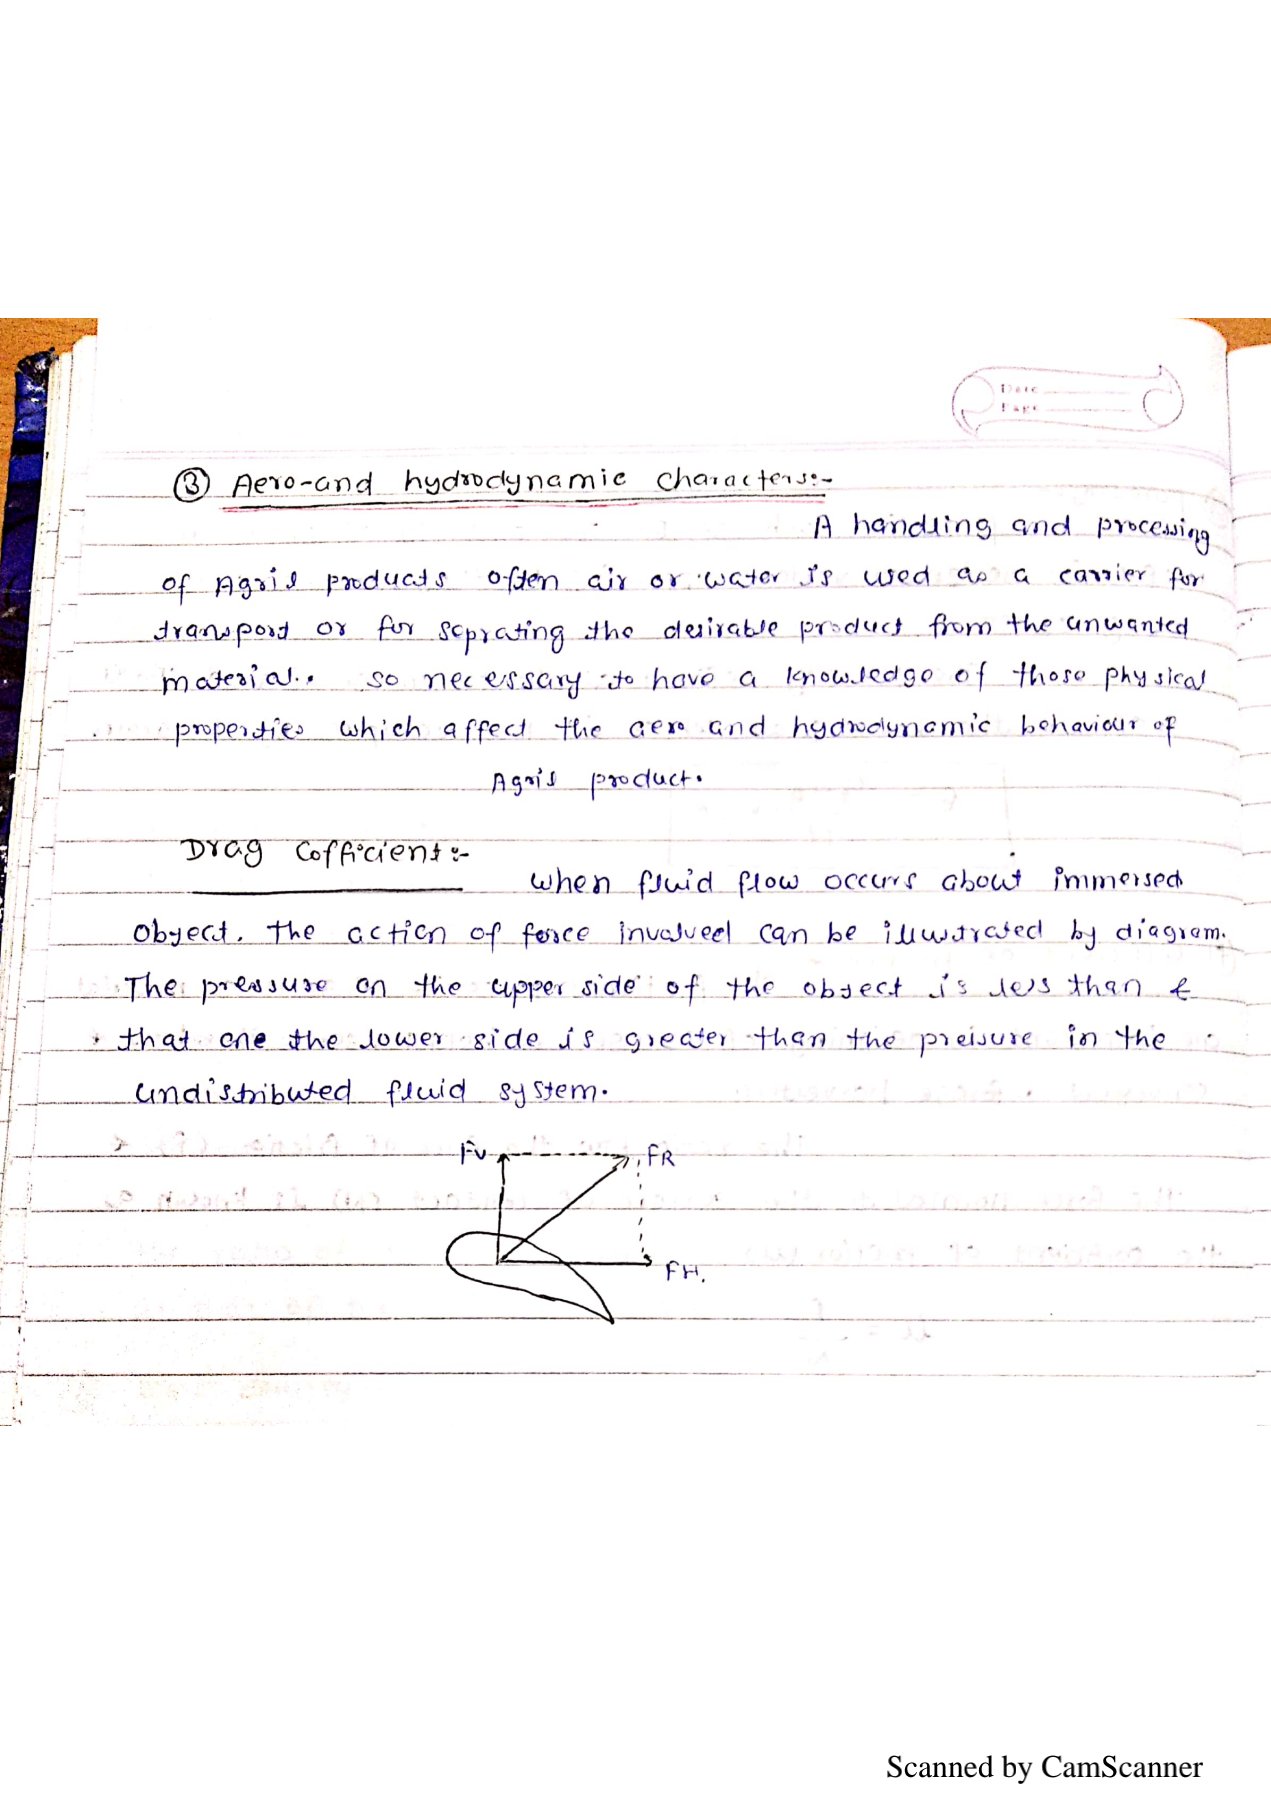 Date
Page
③ Aero-and hydrodynamic characters:-
A handling and processing
of Agril products often air or water is used as a carrier for
transport or for seprating the desirable product from the unwanted
material. so necessary to have a knowledge of those physical
properties which affect the aero and hydrodynamic behaviour of
Agril product.
Drag Cofficient:-
When fluid flow occurs about immersed
object. the action of force involved can be illustrated by diagram.
The pressure on the upper side of the object is less than &
that one the lower side is greater than the pressure in the
undistributed fluid system.
Fv FR
FH.
Scanned by CamScanner